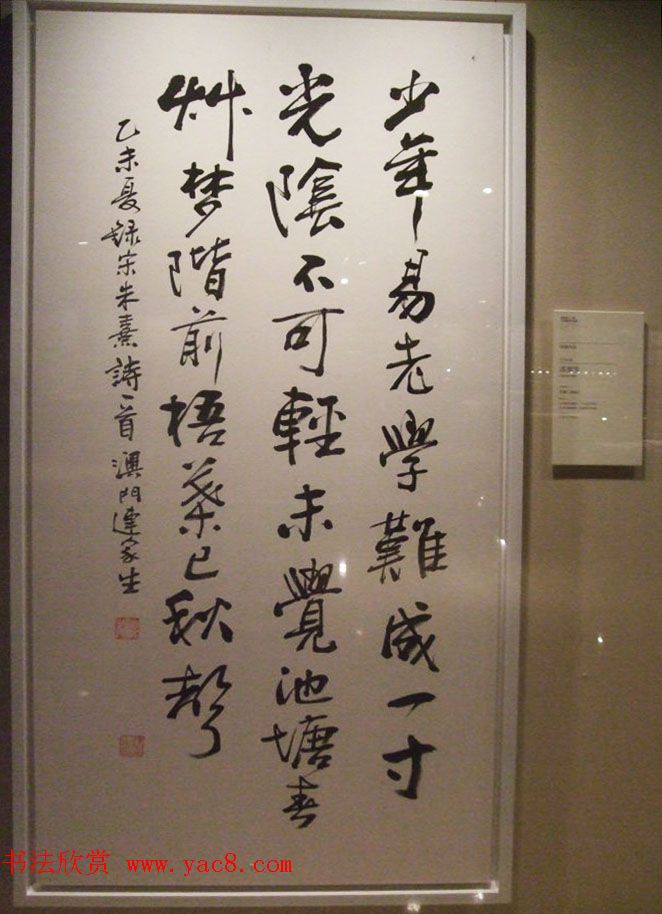 少年易老學難成一寸
光陰不可輕未覺池塘春
艸梦階前梧葉已秋聲
乙未夏録宋朱熹詩一首澳門連家生
书法欣赏 www.yac8.com